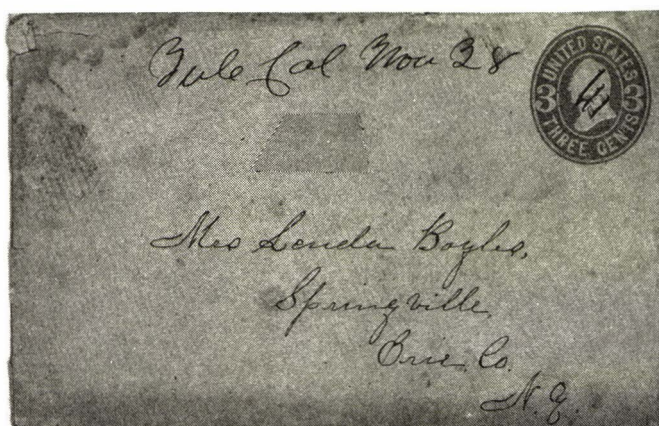 Tule Cal Nov 28
UNITED STATES
3 3
THREE CENTS
Mrs Lenda Boyles,
Springville
Erie Co.
N.Y.